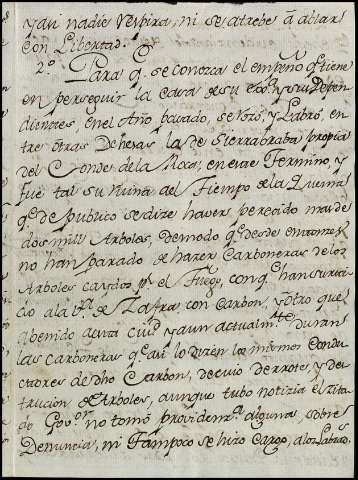 y aun nadie respira, ni se atrebe â aclar
con Libertad.
2.º Para q.e se conozca el empeño q.e tiene
en perseguir la casa su y Depen
dientes, en el Año pasado, se rozó, y Labró, en
tre otras Dehesas la de Sierrabraba propia
del Conde de la Roca; en este Termino, y
fue tal su ruina del Tiempo de la Quema
q.e de publico se dize haver perecido mas de
dos mill Arboles, de modo q.e desde entonzes
no han parado de hazer Carboneras de los
Arboles caydos p.r el Fuego, con q.e han surti
do a la V.a de Zafra con Carbon, y otro que
abenido a esta ciu.d y aun actualm.te duran
las carboneras q.e asi lo dizen los mismos Condu
ctores de dho Carbon, de cuio derrote, y des
truccion de Arboles, aunque tubo notizia el zita
do Gov.or no tomó providenz.a alguna, sobre
Denuncia, ni Tampoco se hizo Cargo, a los Labrad.